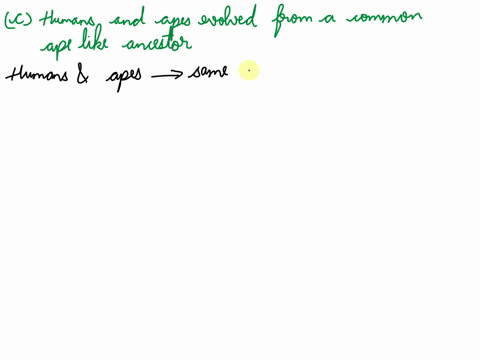 (C) Humans and apes evolved from a common
ape like ancestor
Humans & apes → same